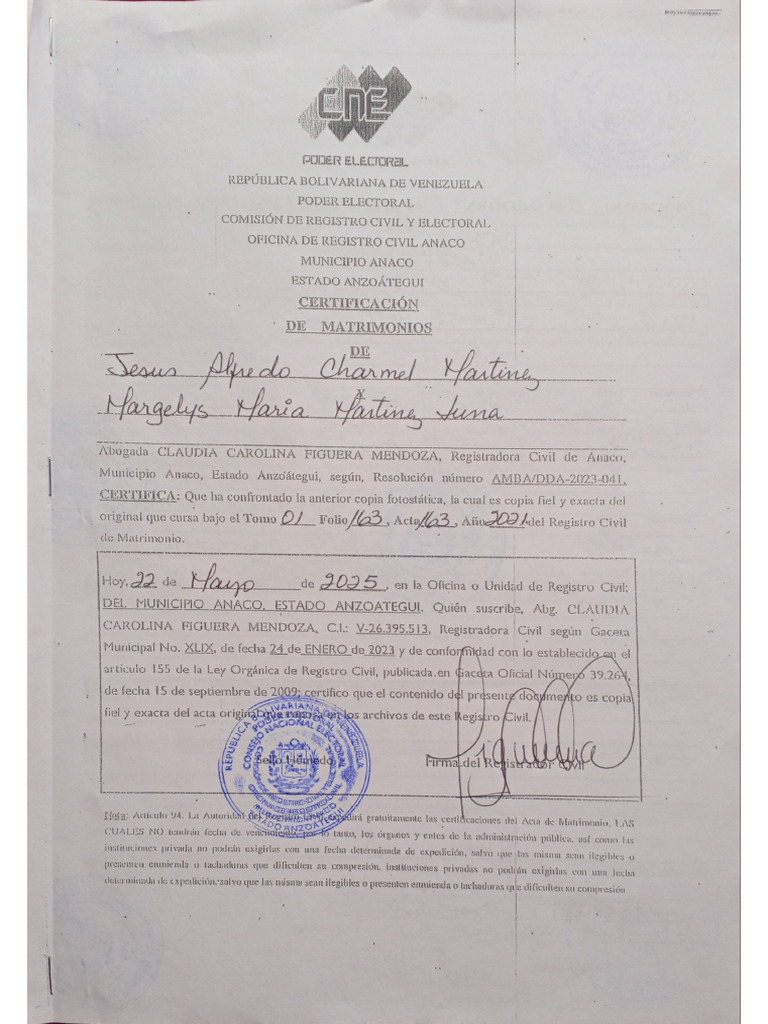 CNE
PODER ELECTORAL
REPÚBLICA BOLIVARIANA DE VENEZUELA
PODER ELECTORAL
COMISIÓN DE REGISTRO CIVIL Y ELECTORAL
OFICINA DE REGISTRO CIVIL ANACO
MUNICIPIO ANACO
ESTADO ANZOÁTEGUI
CERTIFICACIÓN
DE MATRIMONIOS
DE
Jesus Alfredo Charmel Martinez
Y
Margelys Maria Martinez Luna
Abogada CLAUDIA CAROLINA FIGUERA MENDOZA, Registradora Civil de Anaco,
Municipio Anaco, Estado Anzoátegui, según, Resolución número AMBA/DDA-2023-041,
CERTIFICA: Que ha confrontado la anterior copia fotostática, la cual es copia fiel y exacta del
original que cursa bajo el Tomo 01 Folio 163, Acta 163, Año 2021 del Registro Civil
de Matrimonio.
Hoy, 22 de Mayo de 2025, en la Oficina o Unidad de Registro Civil:
DEL MUNICIPIO ANACO, ESTADO ANZOATEGUI. Quién suscribe, Abg. CLAUDIA
CAROLINA FIGUERA MENDOZA, C.I.: V-26.395.513, Registradora Civil según Gaceta
Municipal No. XLIX, de fecha 24 de ENERO de 2023 y de conformidad con lo establecido en el
articulo 155 de la Ley Orgánica de Registro Civil, publicada en Gaceta Oficial Número 39.264,
de fecha 15 de septiembre de 2009; certifico que el contenido del presente documento es copia
fiel y exacta del acta original que reposa en los archivos de este Registro Civil.
REPÚBLICA BOLIVARIANA DE VENEZUELA
PODER ELECTORAL
CONSEJO NACIONAL ELECTORAL
MUNICIPIO ANACO
ESTADO ANZOATEGUI
Sello Húmedo
Firma del Registrador Civil
Nota: Artículo 94. La Autoridad del Registro Civil expedirá gratuitamente las certificaciones del Acta de Matrimonio, LAS
CUALES NO tendrán fecha de vencimiento, por lo tanto, los órganos y entes de la administración pública, así como las
instituciones privada no podrán exigirlas con una fecha determinada de expedición, salvo que las misma sean ilegibles o
presenten enmienda o tachaduras que dificulten su compresión. instituciones privadas no podrán exigirlas con una fecha
determinada de expedición, salvo que las misma sean ilegibles o presenten enmienda o tachaduras que dificulten su compresión